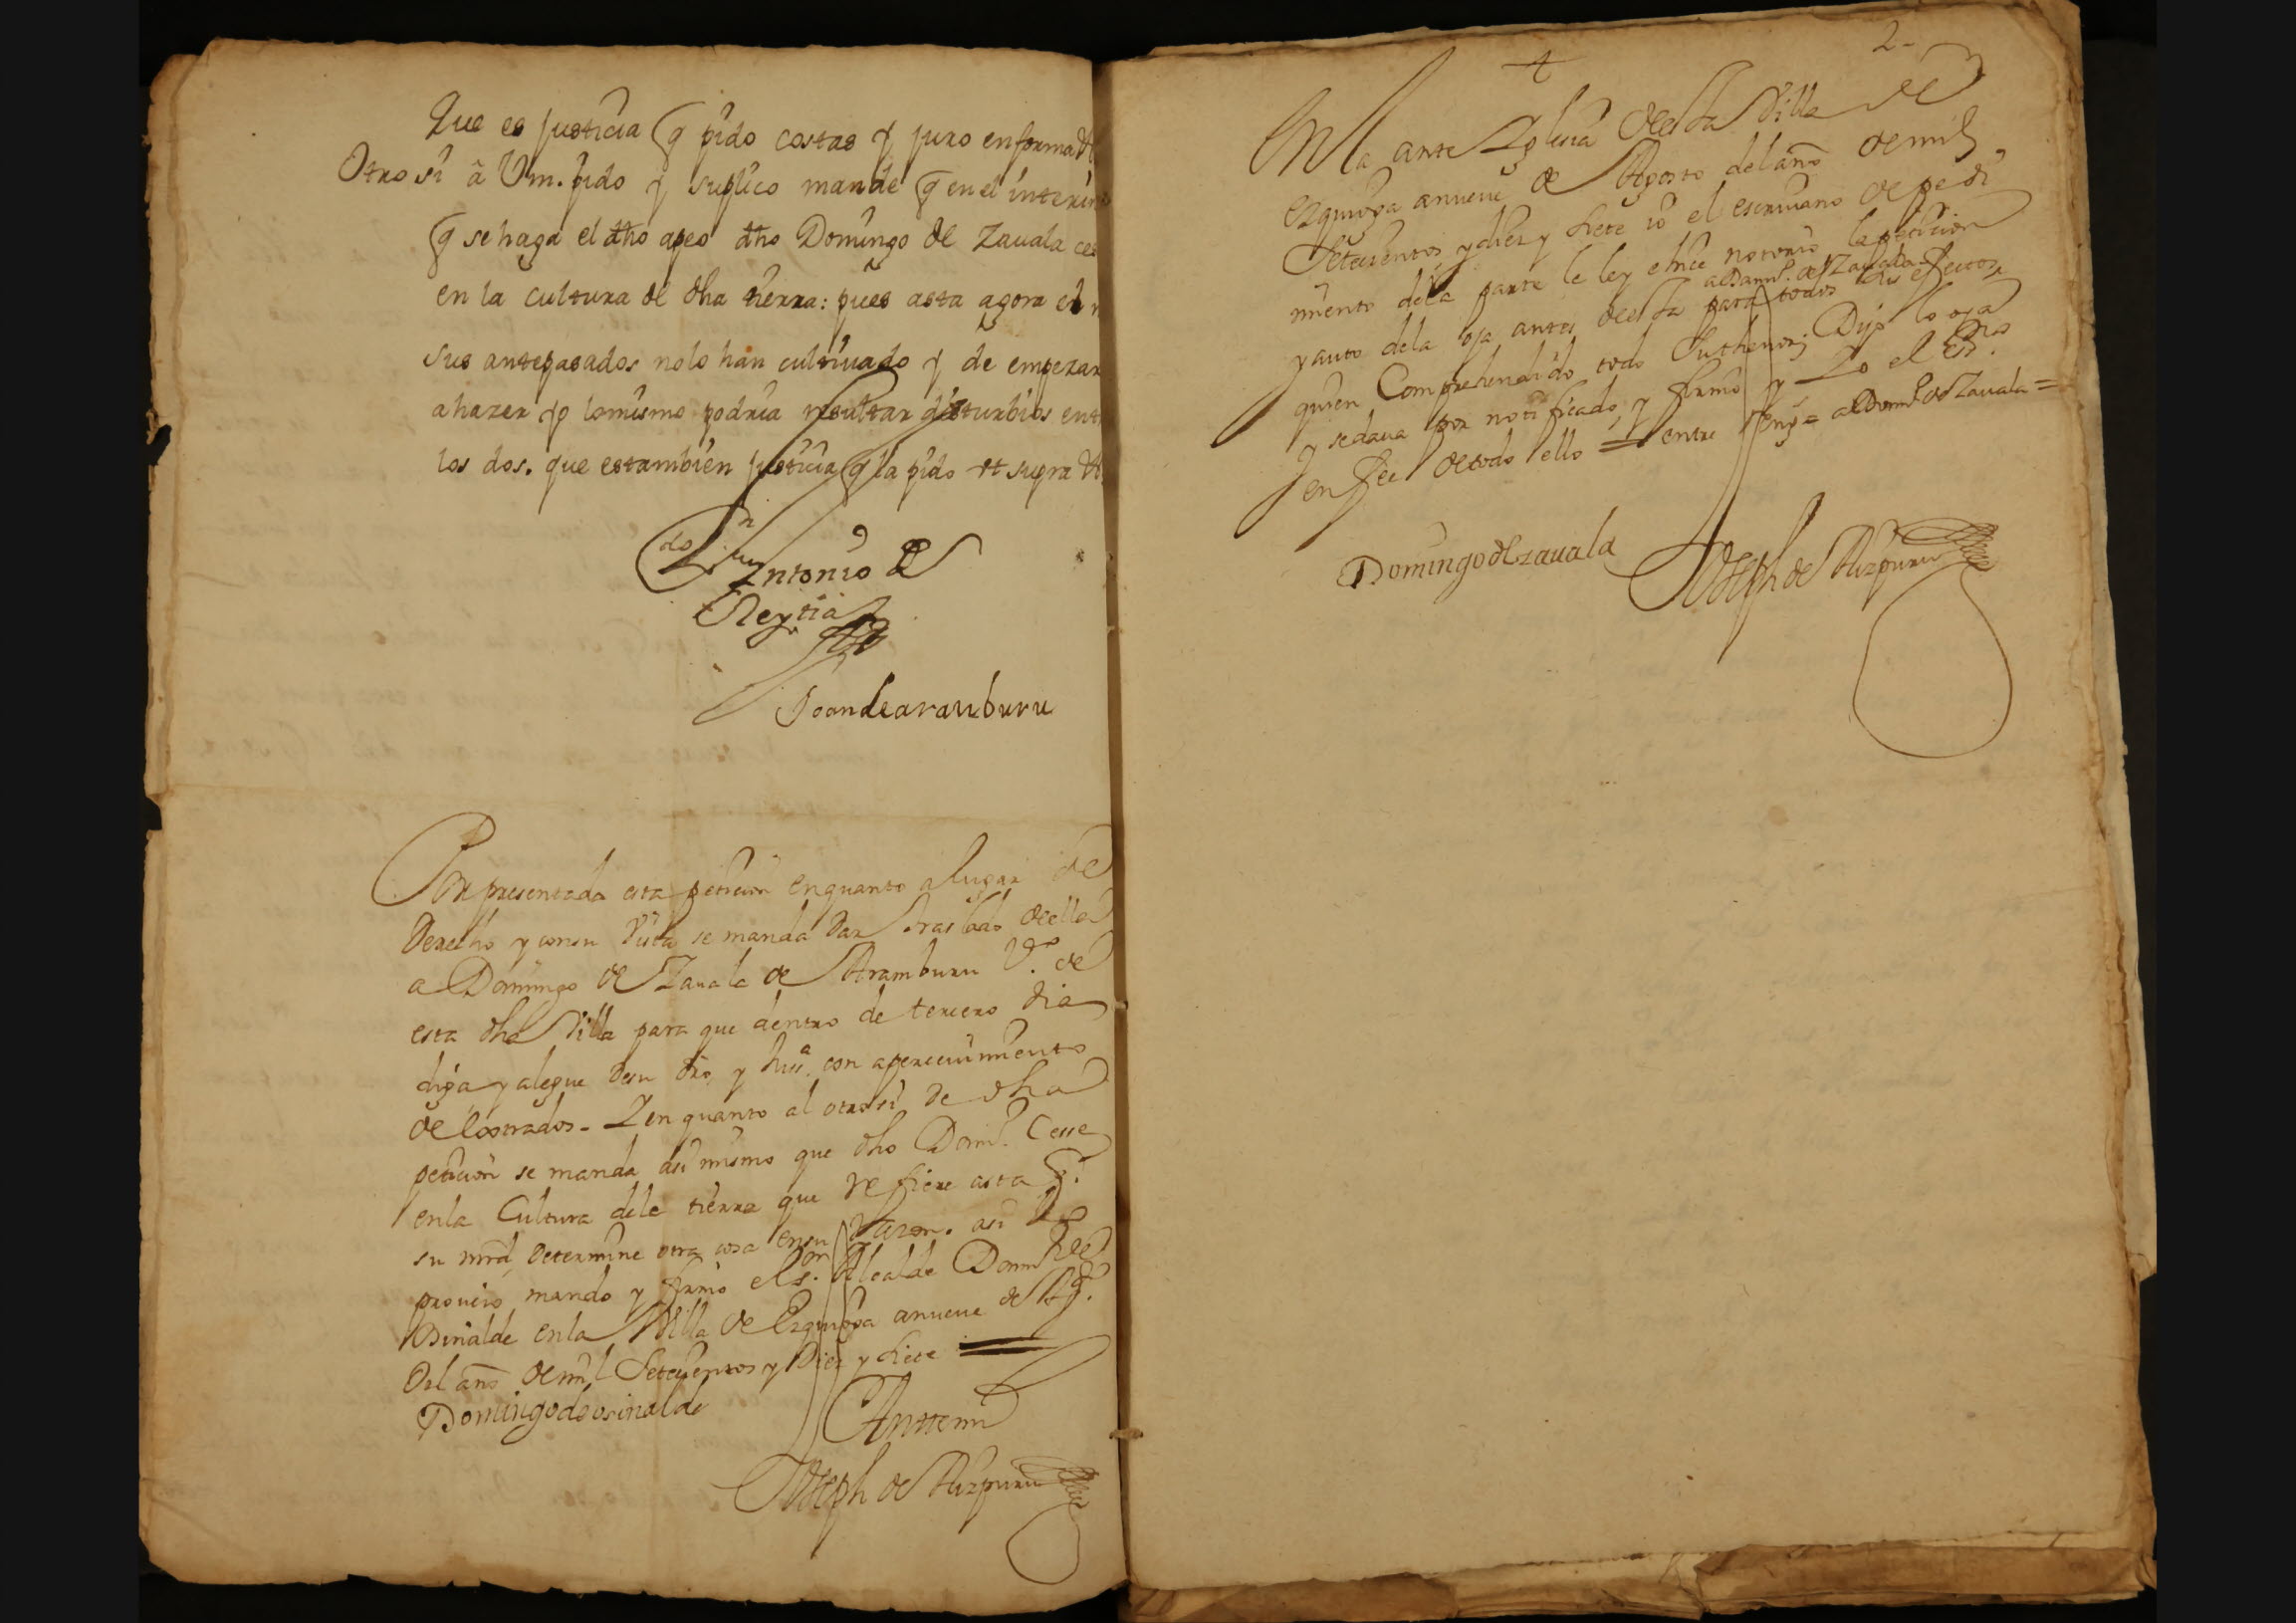 Que es justicia q pido costas y juro en forma &
Otro si â Vm. pido y suplico mande q en el interin
q se haga el dho apeo dho Domingo de Zauala ces
en la cultura de dha tierra: pues asta agora el n
sus antepasados no lo han cultiuado y de empezar
a hazer yo lo mismo podria resultar disturbios ent
los dos. que es tambien justicia q la pido ut supra &
Ldo Dn Antonio de
Reytia
Joan de aramburu
Por presentada esta peticion en quanto a lugar de
Derecho y con su vista se manda dar traslado de ella
a Domingo de Zauala de Aramburu Vº. de
esta dha Villa para que dentro de tercero dia
diga y alegue de su dro, y Jusª. con aperceuimiento
de los estrados - Y en quanto al otro si de dha
peticion se manda asi mismo que dho Domº. Cesse
en la Cultura de la tierra que refiere asta q.
su mrd, Determine otra cosa en su razon. asi lo
proueio, mando y firmo el Sor. Alcalde Domº de
Osinalde en la Villa de Ezquioga a nueue de Agº.
Del año de mil Setecientos y Diez y siete
Domingo de osinalde
Ante mi
Joseph de Aizpuru
2-
En la ante Yglesia de esta Villa de
Ezquioga a nueue de Agosto del año de mil
Setecientos y diez y siete io el escriuano de pedi
miento de la parte le ley e hice notorio la peticion
a Domº. de Zauala
y auto de la oja antes de esta para todos sus efectos,
quien Comprehendido todo su thenor; Dijo lo oya
y se daua por notificado, y firmo y Yo el Essno
en fee de todo ello = entre rengs = a Domº. de Zauala =
Domingo de zauala
Joseph de Aizpuru